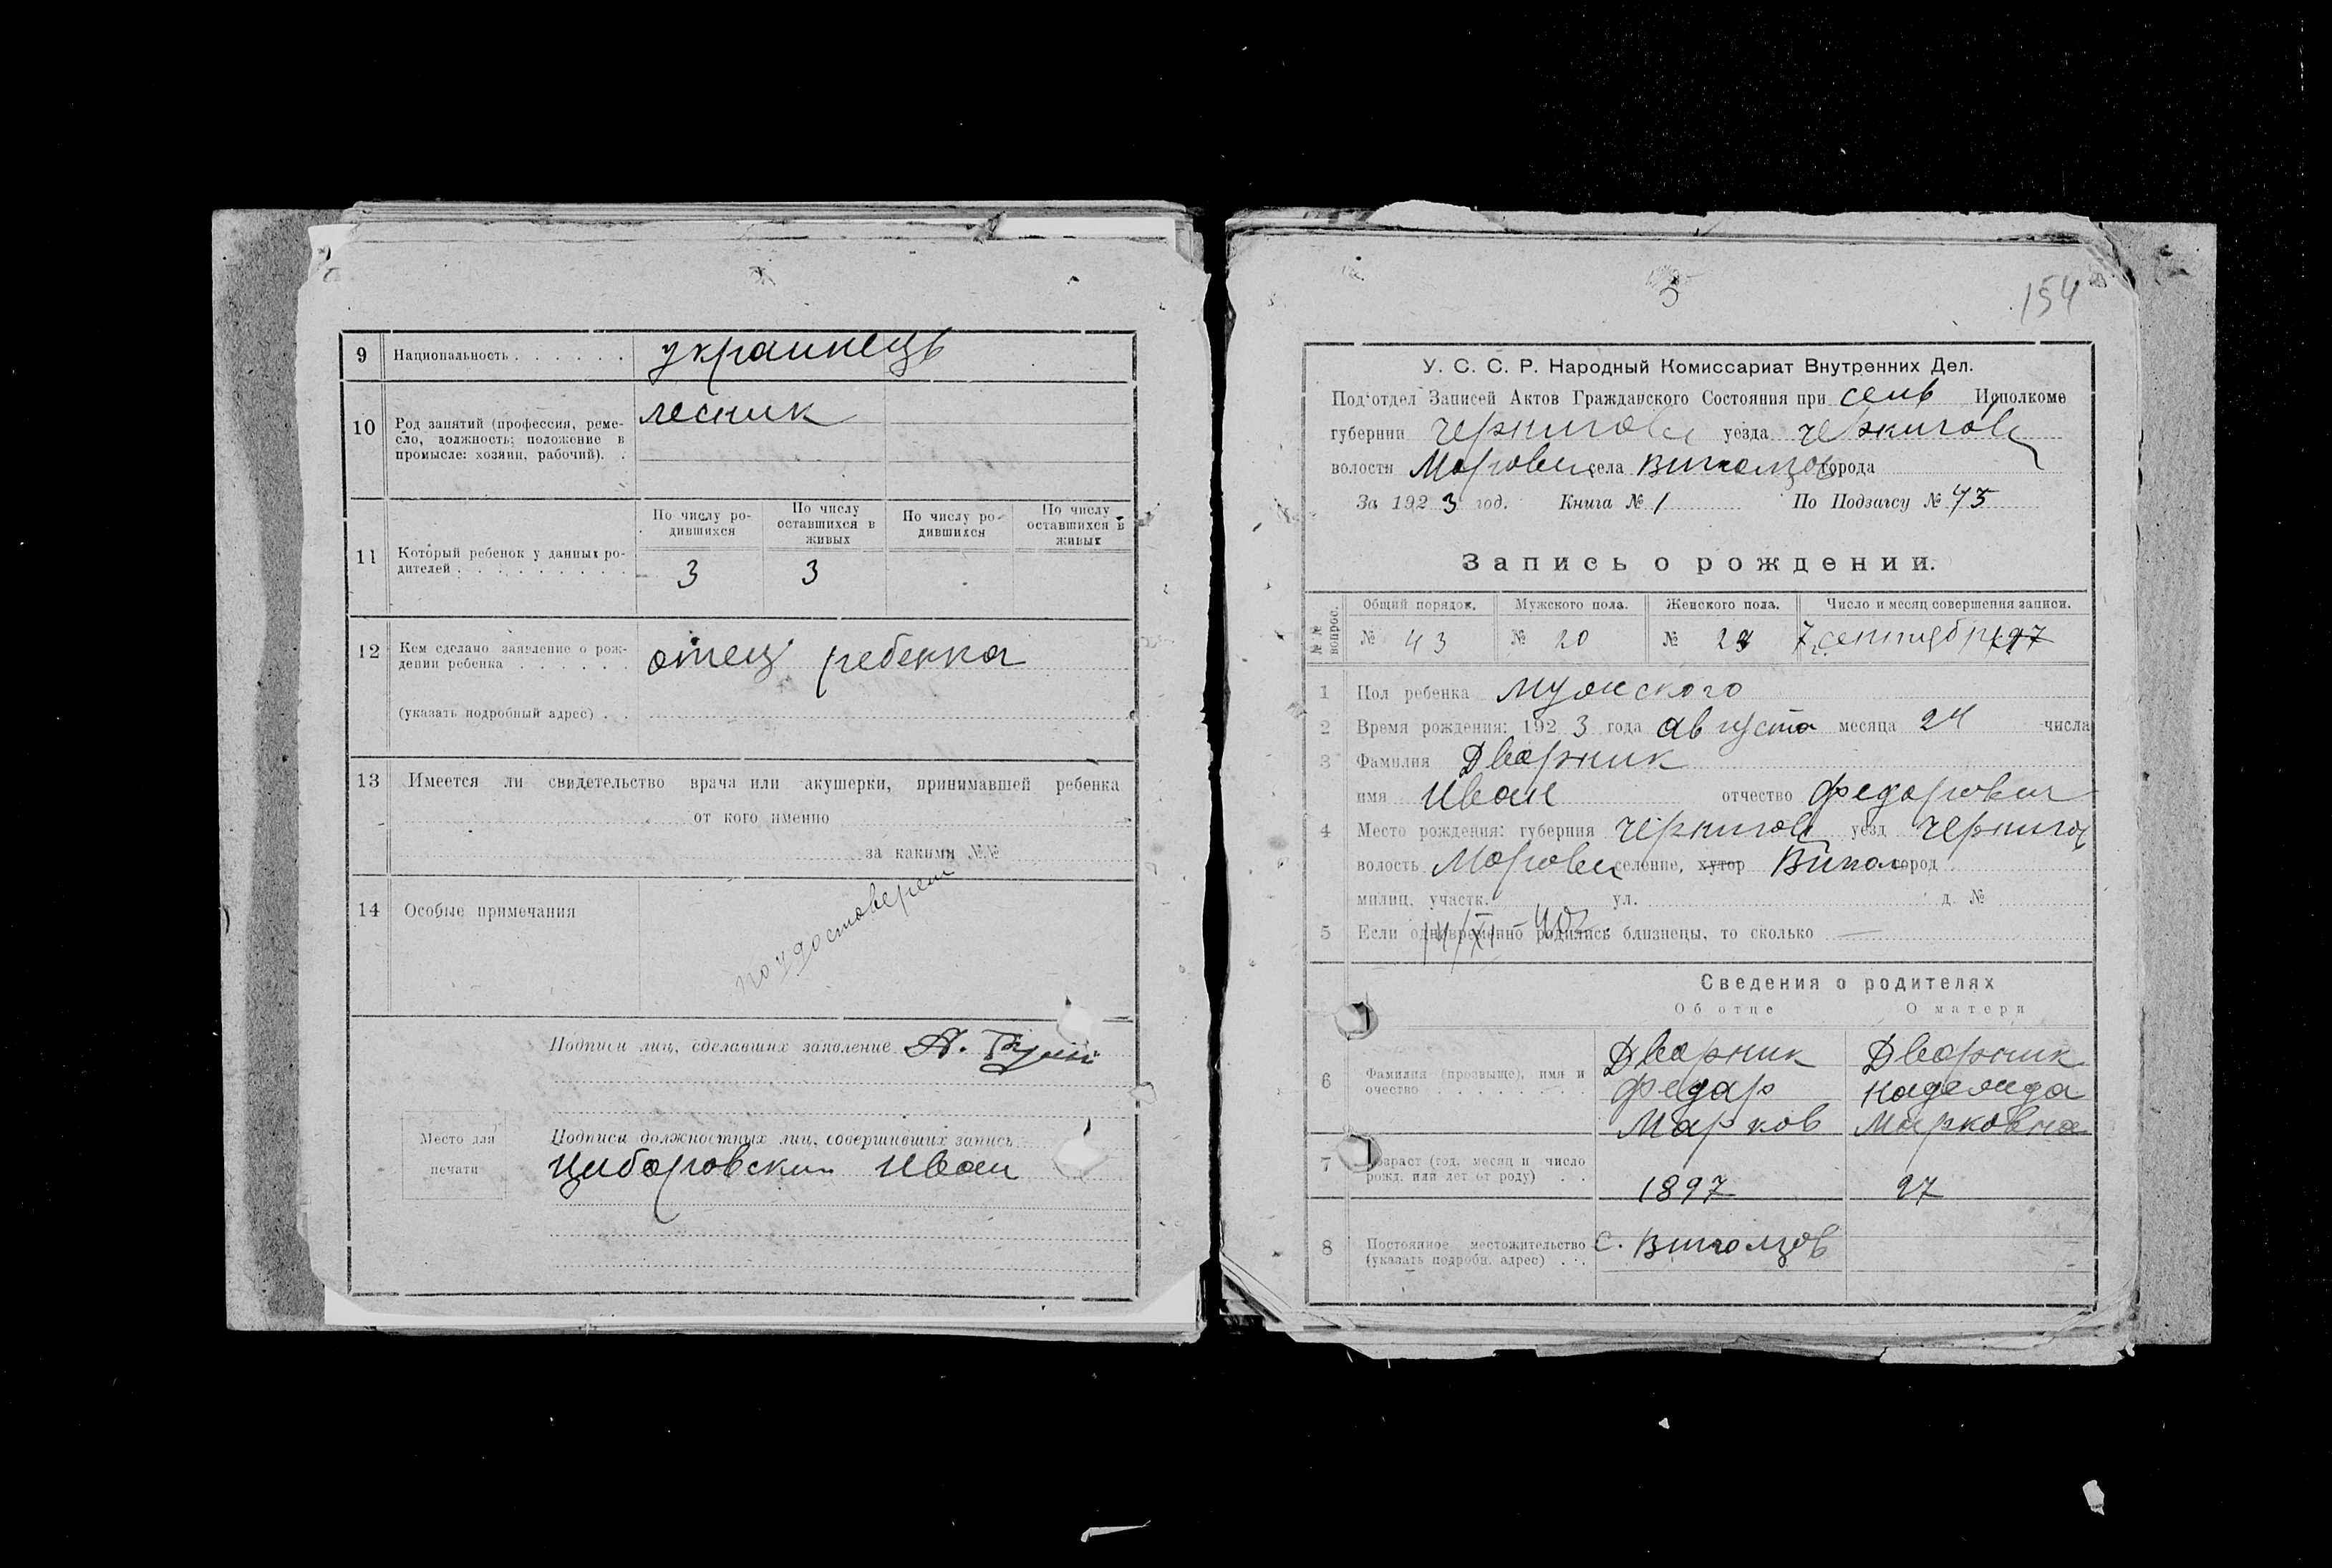 9 Национальность . . . . . . украинець
10 Род занятий (профессия, реме-
сло, должность: положение в
промысле: хозяин, рабочий). .
лесник
11 Который ребенок у данных ро-
дителей . . . . . . . . . .
По числу ро-
дившихся
По числу
оставшихся в
живых
По числу ро-
дившихся
По числу
оставшихся в
живых
3 3
12 Кем сделано заявление о рож-
дении ребенка . . . . . . отец ребенка
(указать подробный адрес) . .
13 Имеется ли свидетельство врача или акушерки, принимавшей ребенка
от кого именно
за какими №№
14 Особые примечания
Подписи лиц, сделавших заявление А.
Место для
печати
Подписи должностных лиц, совершивших запись
Циборовский Иван
154
У. С. С. Р. Народный Комиссариат Внутренних Дел.
Под‘отдел Записей Актов Гражданского Состояния при сель Исполкоме
губернии Чернигов уезда Чернигов
волости Моровск села Виползов города
За 1923 год. Книга № 1 По Подзагсу № 43
Запись о рождении.
№№ вопрос.
Общий порядок. Мужского пола. Женского пола. Число и месяц совершения записи.
№ 43 № 20 № 23 7 сентября
1 Пол ребенка мужского
2 Время рождения: 1923 года августа месяца 24 числа
3 Фамилия Дворник
имя Иван отчество Федорович
4 Место рождения: губерния Чернигов уезд Чернигов
волость Моровск селение, хутор Випол город
милиц. участк. ул. д. №
5 Если одновременно родились близнецы, то сколько —
Сведения о родителях
Об отце О матери
6 Фамилия (прозвыще), имя и
очество . . . . . . . . .
Дворник
Федар
Марков
Дворник
Надежда
Марковна
7 Возраст (год, месяц и число
рожд. или лет от роду) . .
1897 27
8 Постоянное местожительство
(указать подробн. адрес) . . .
с. Виползов